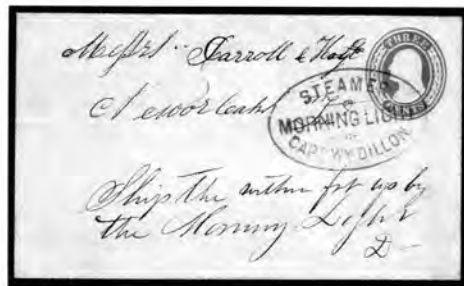 Messrs Carroll & Hoy
THREE CENTS
New orleans
STEAMER
MORNING LIGHT
CAPT WM DILLON
Ship the within for us by
the Morning Light
D